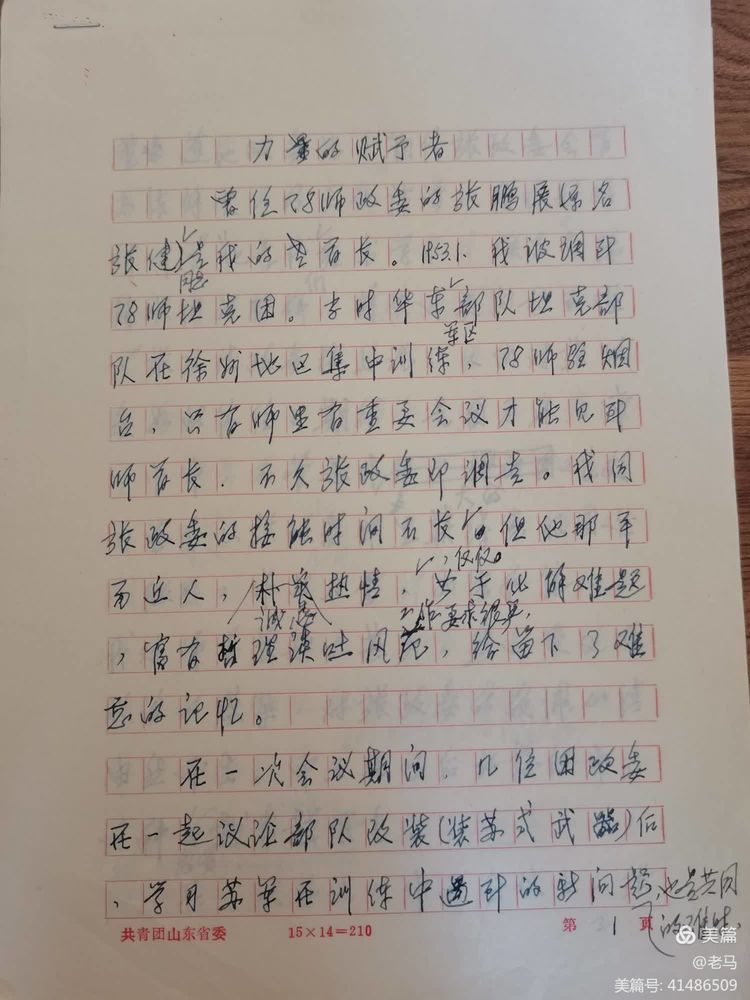 力量的赋予者
曾任78师政委的张鹏展原名
张健同志是我的老首长。1953.1.我被调到
78师坦克团。当时华东军区部队坦克部
队在徐州地区集中训练，78师驻烟
台，只有师里有重要会议才能见到
师首长，不久张政委即调走。我同
张政委的接触时间不长，但他那平
易近人，朴实诚恳热情，仅仅。善于化解难题
工作要求很严，
，富有哲理谈吐风范，给留下了难
忘的记忆。
在一次会议期间，几位团政委
在一起议论部队改装(装苏式武器)后
，学习苏军在训练中遇到的新问题，也是共同
的难点
共青团山东省委 15×14=210 第 1 页
美篇
@老马
美篇号: 41486509